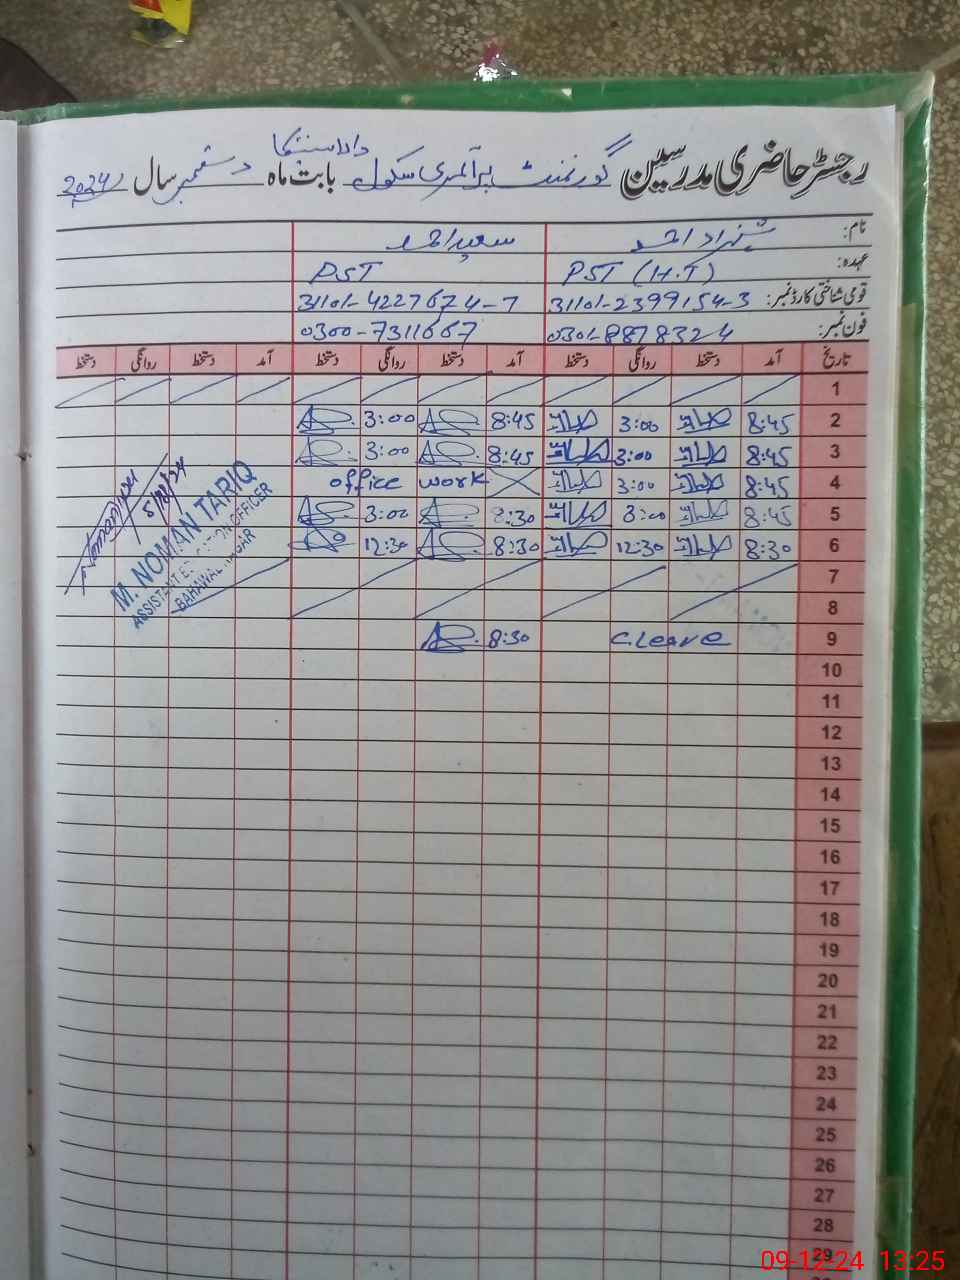 رجسٹر حاضری مدرسین گورنمنٹ پرائمری سکول بابت ماہ دسمبر سال 2024
نام: شہزاد احمد سعید احمد
عہدہ: PST (H.T) PST
قومی شناختی کارڈ نمبر: 31101-2399154-3 31101-4227674-7
فون نمبر: 0301-8878324 0300-7311667
تاریخ آمد دستخط روانگی دستخط آمد دستخط روانگی دستخط آمد دستخط روانگی دستخط
1
2 8:45 3:00 8:45 3:00
3 8:45 3:00 8:45 3:00
4 8:45 3:00 office work
5 8:45 3:00 8:30 3:00
6 8:30 12:30 8:30 12:30
7
8
9 C.Leave 8:30
10
11
12
13
14
15
16
17
18
19
20
21
22
23
24
25
26
27
28
29
5/12/24
M. NOMAN TARIQ
ASSISTANT EDUCATION OFFICER
BAHAWALNAGAR
09-12-24 13:25